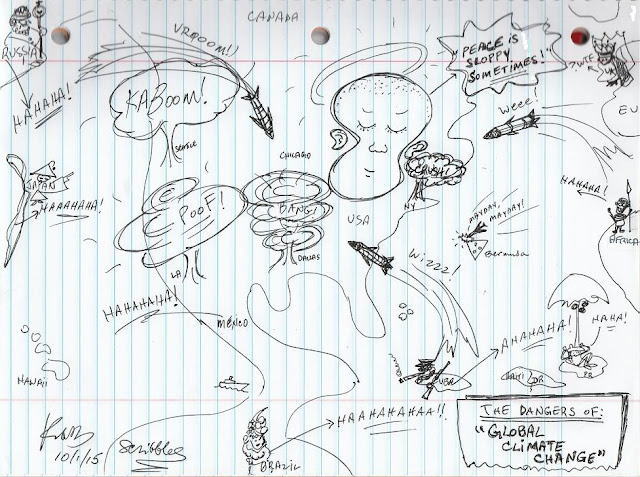 CANADA
RUSSIA
VRBOOM!!
"PEACE IS
SLOPPY
SOMETIMES!"
? WTF
UK
HAHAHA!
KABOOM!
Weee!
EU
SEATTLE
CHICAGO
CRUSH!
JAPAN
HAAAHAHA!
POOF!
BANG!
NY
MAYDAY,
MAYDAY!
HAHAHA!
USA
AFRICA
Bermuda
LA
DALLAS
Wizzz!
HAHAHAHA!
MÉXICO
AHAHAHA!
HAHA!
HAWAII
CUBA
HAITI
DR
PR
HAAHAHAHAA!!
BRAZIL
10/1/15
Scribbles
THE DANGERS OF:
"GLOBAL
CLIMATE
CHANGE"